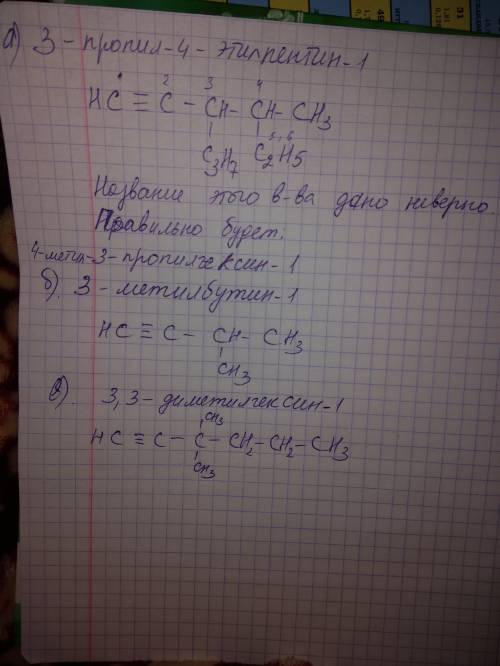 а) 3 - пропил - 4 - этилпентин - 1
1 2 3 4
HC ≡ C - CH - CH - CH3
5, 6
C3H7 C2H5
Название этого в-ва дано неверно.
Правильно будет:
4-метил-3-пропилгексин-1
б). 3 - метилбутин - 1
HC ≡ C - CH - CH3
CH3
в). 3,3 - диметилгексин-1
CH3
HC ≡ C - C - CH2 - CH2 - CH3
CH3